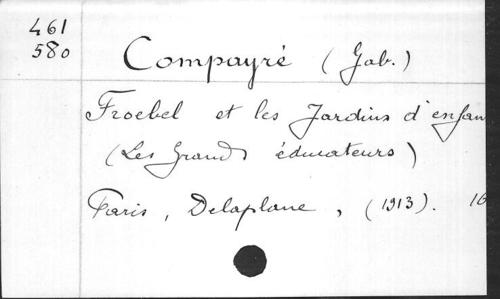 461
580
Compayré (Gab.)
Froebel et les Jardins d'enfan
(Les Grands éducateurs)
Paris, Delaplane, (1913). 16